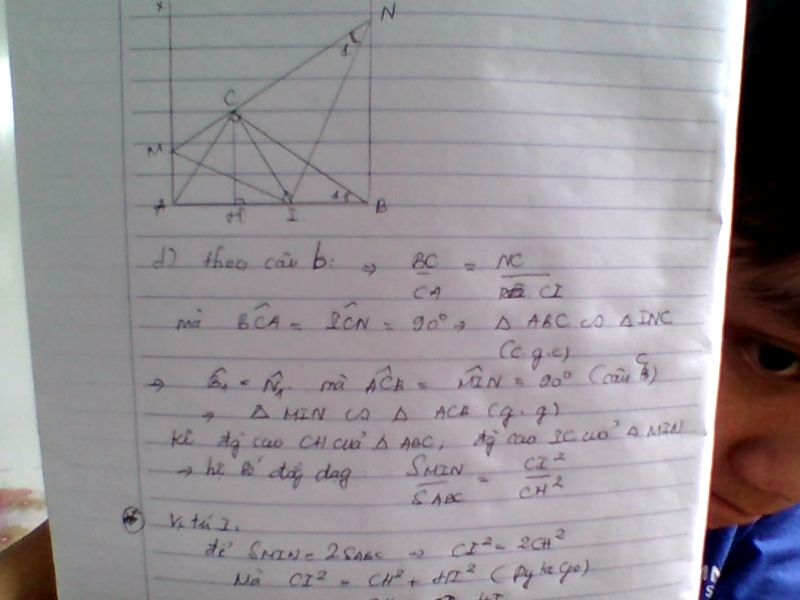 x
N
1
C
M
A
H
I
B
d) theo câu b: ⇒ BC/CA = NC/CI
mà BĈA = IĈN = 90° ⇒ Δ ABC ∽ Δ INC
(c.g.c)
⇒ B̂₁ = N̂₁ mà AĈB = MÎN = 90° (câu c)
⇒ Δ MIN ∽ Δ ACB (g.g)
kẻ đg cao CH của Δ ABC, đg cao IC của Δ MIN
→ hệ số đồng dạg S MIN / S ABC = CI² / CH²
Vị trí I.
để S MIN = 2 S ABC ⇒ CI² = 2CH²
Mà CI² = CH² + HI² (Pytago)